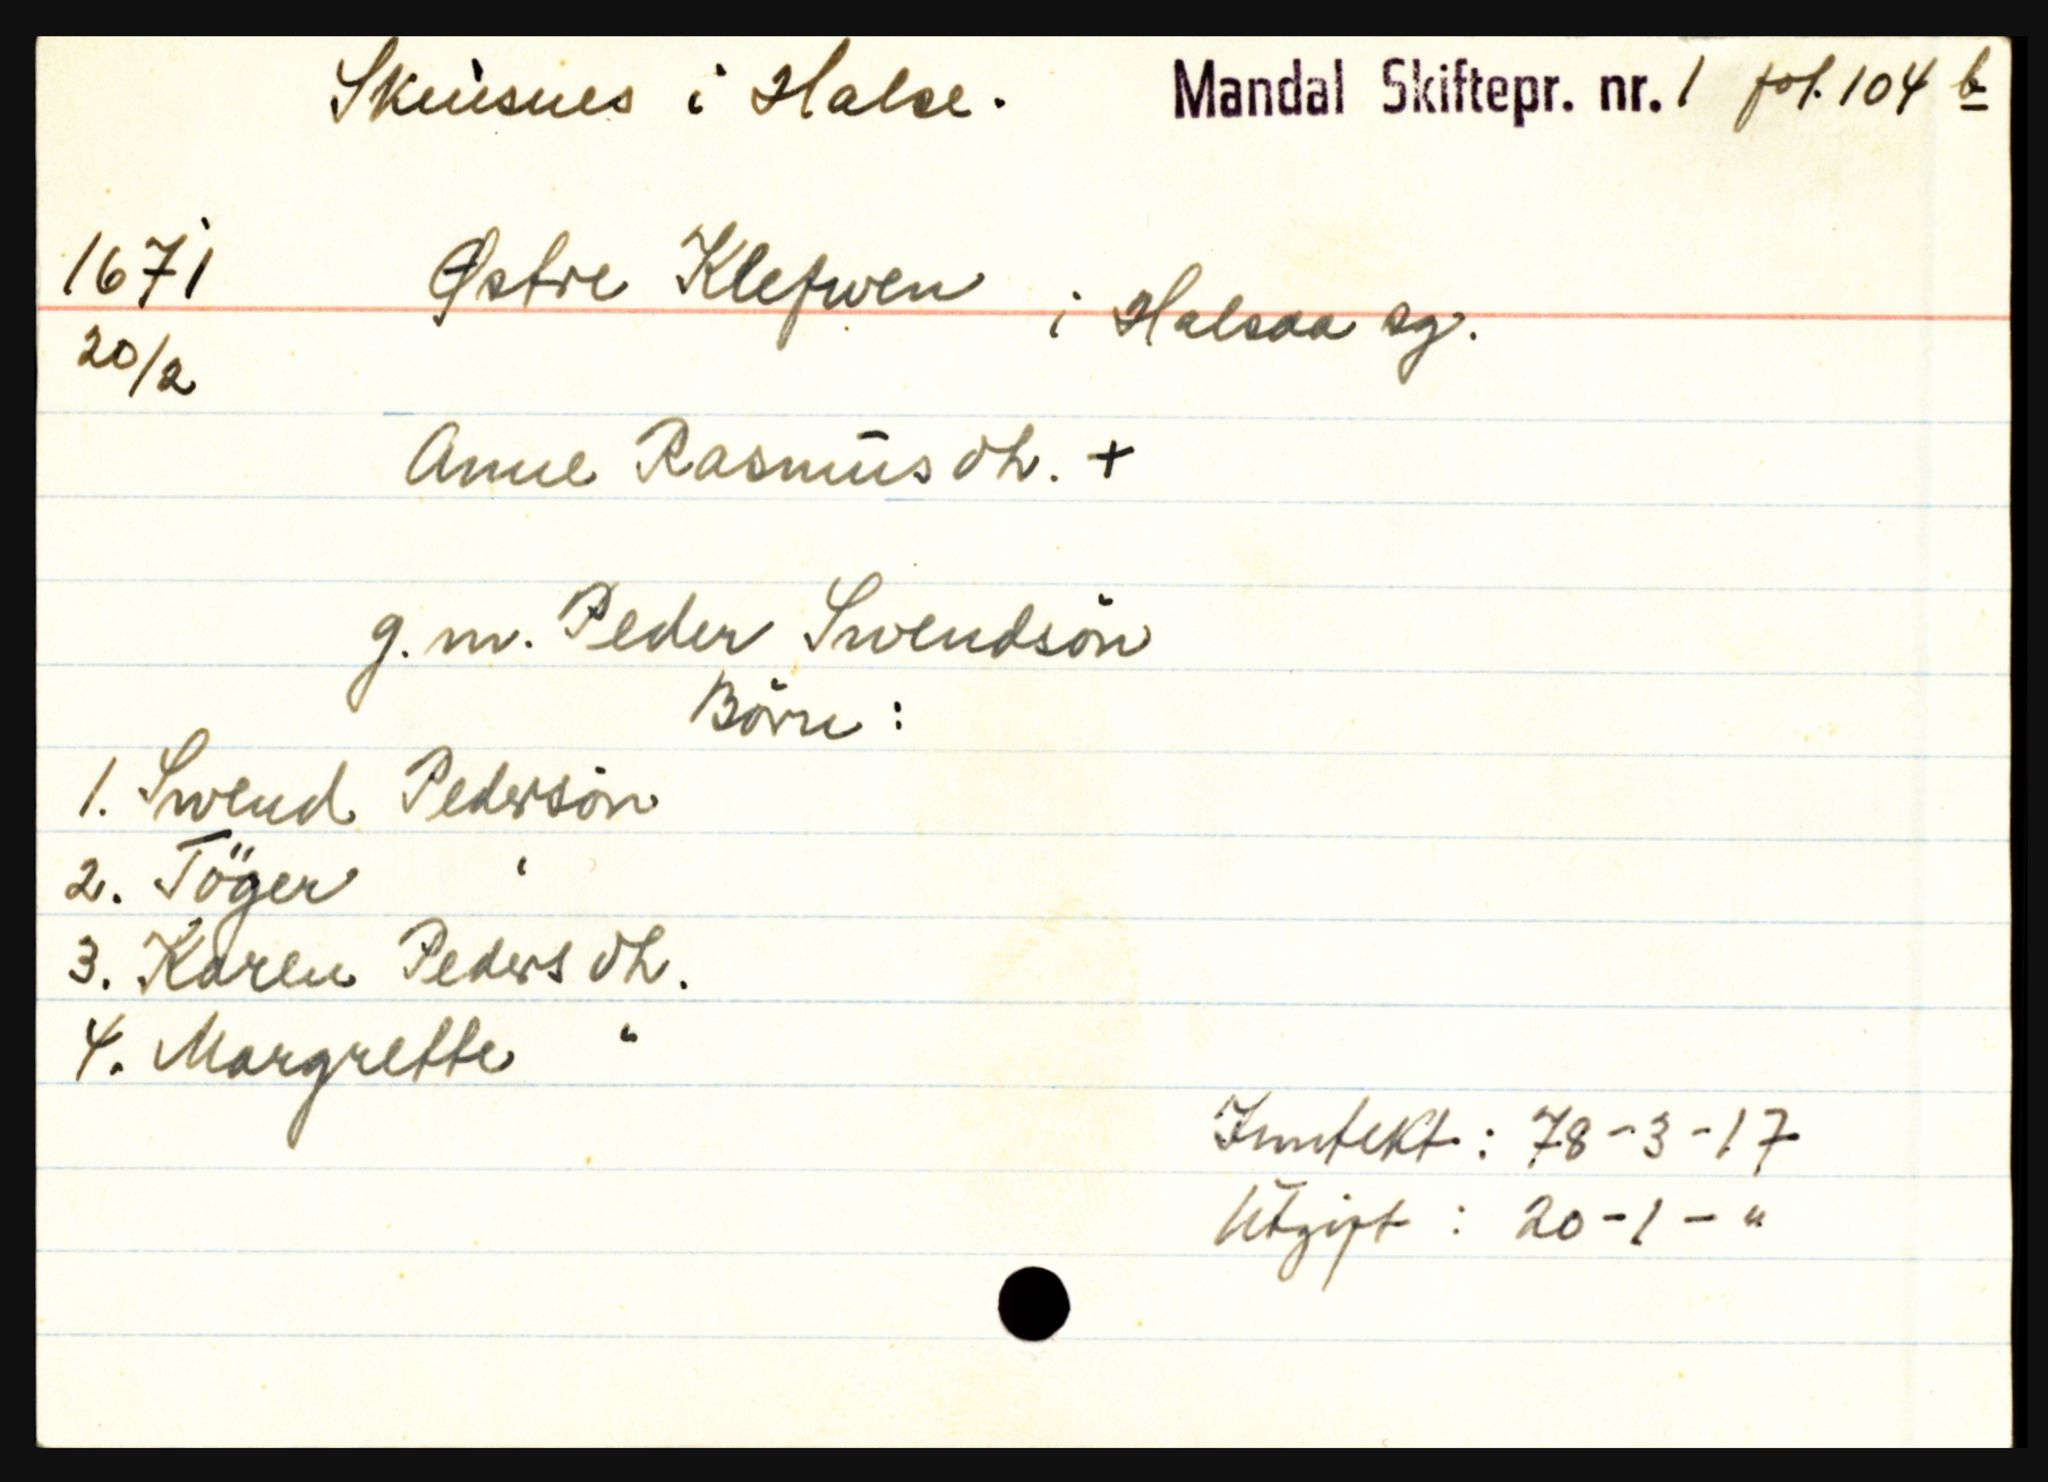 Skiusnes i Halse. Mandal Skiftepr. nr. 1 fol. 104 b
1671 Østre Klefwen i Halsaa sg.
20/2
Anne Rasmusdh. +
g. m. Peder Swendsön
Börn :
1. Swend Pedersön
2. Töger "
3. Karen Pedersdh.
4. Margrette "
Inntekt : 78-3-17
Utgift : 20-1-"